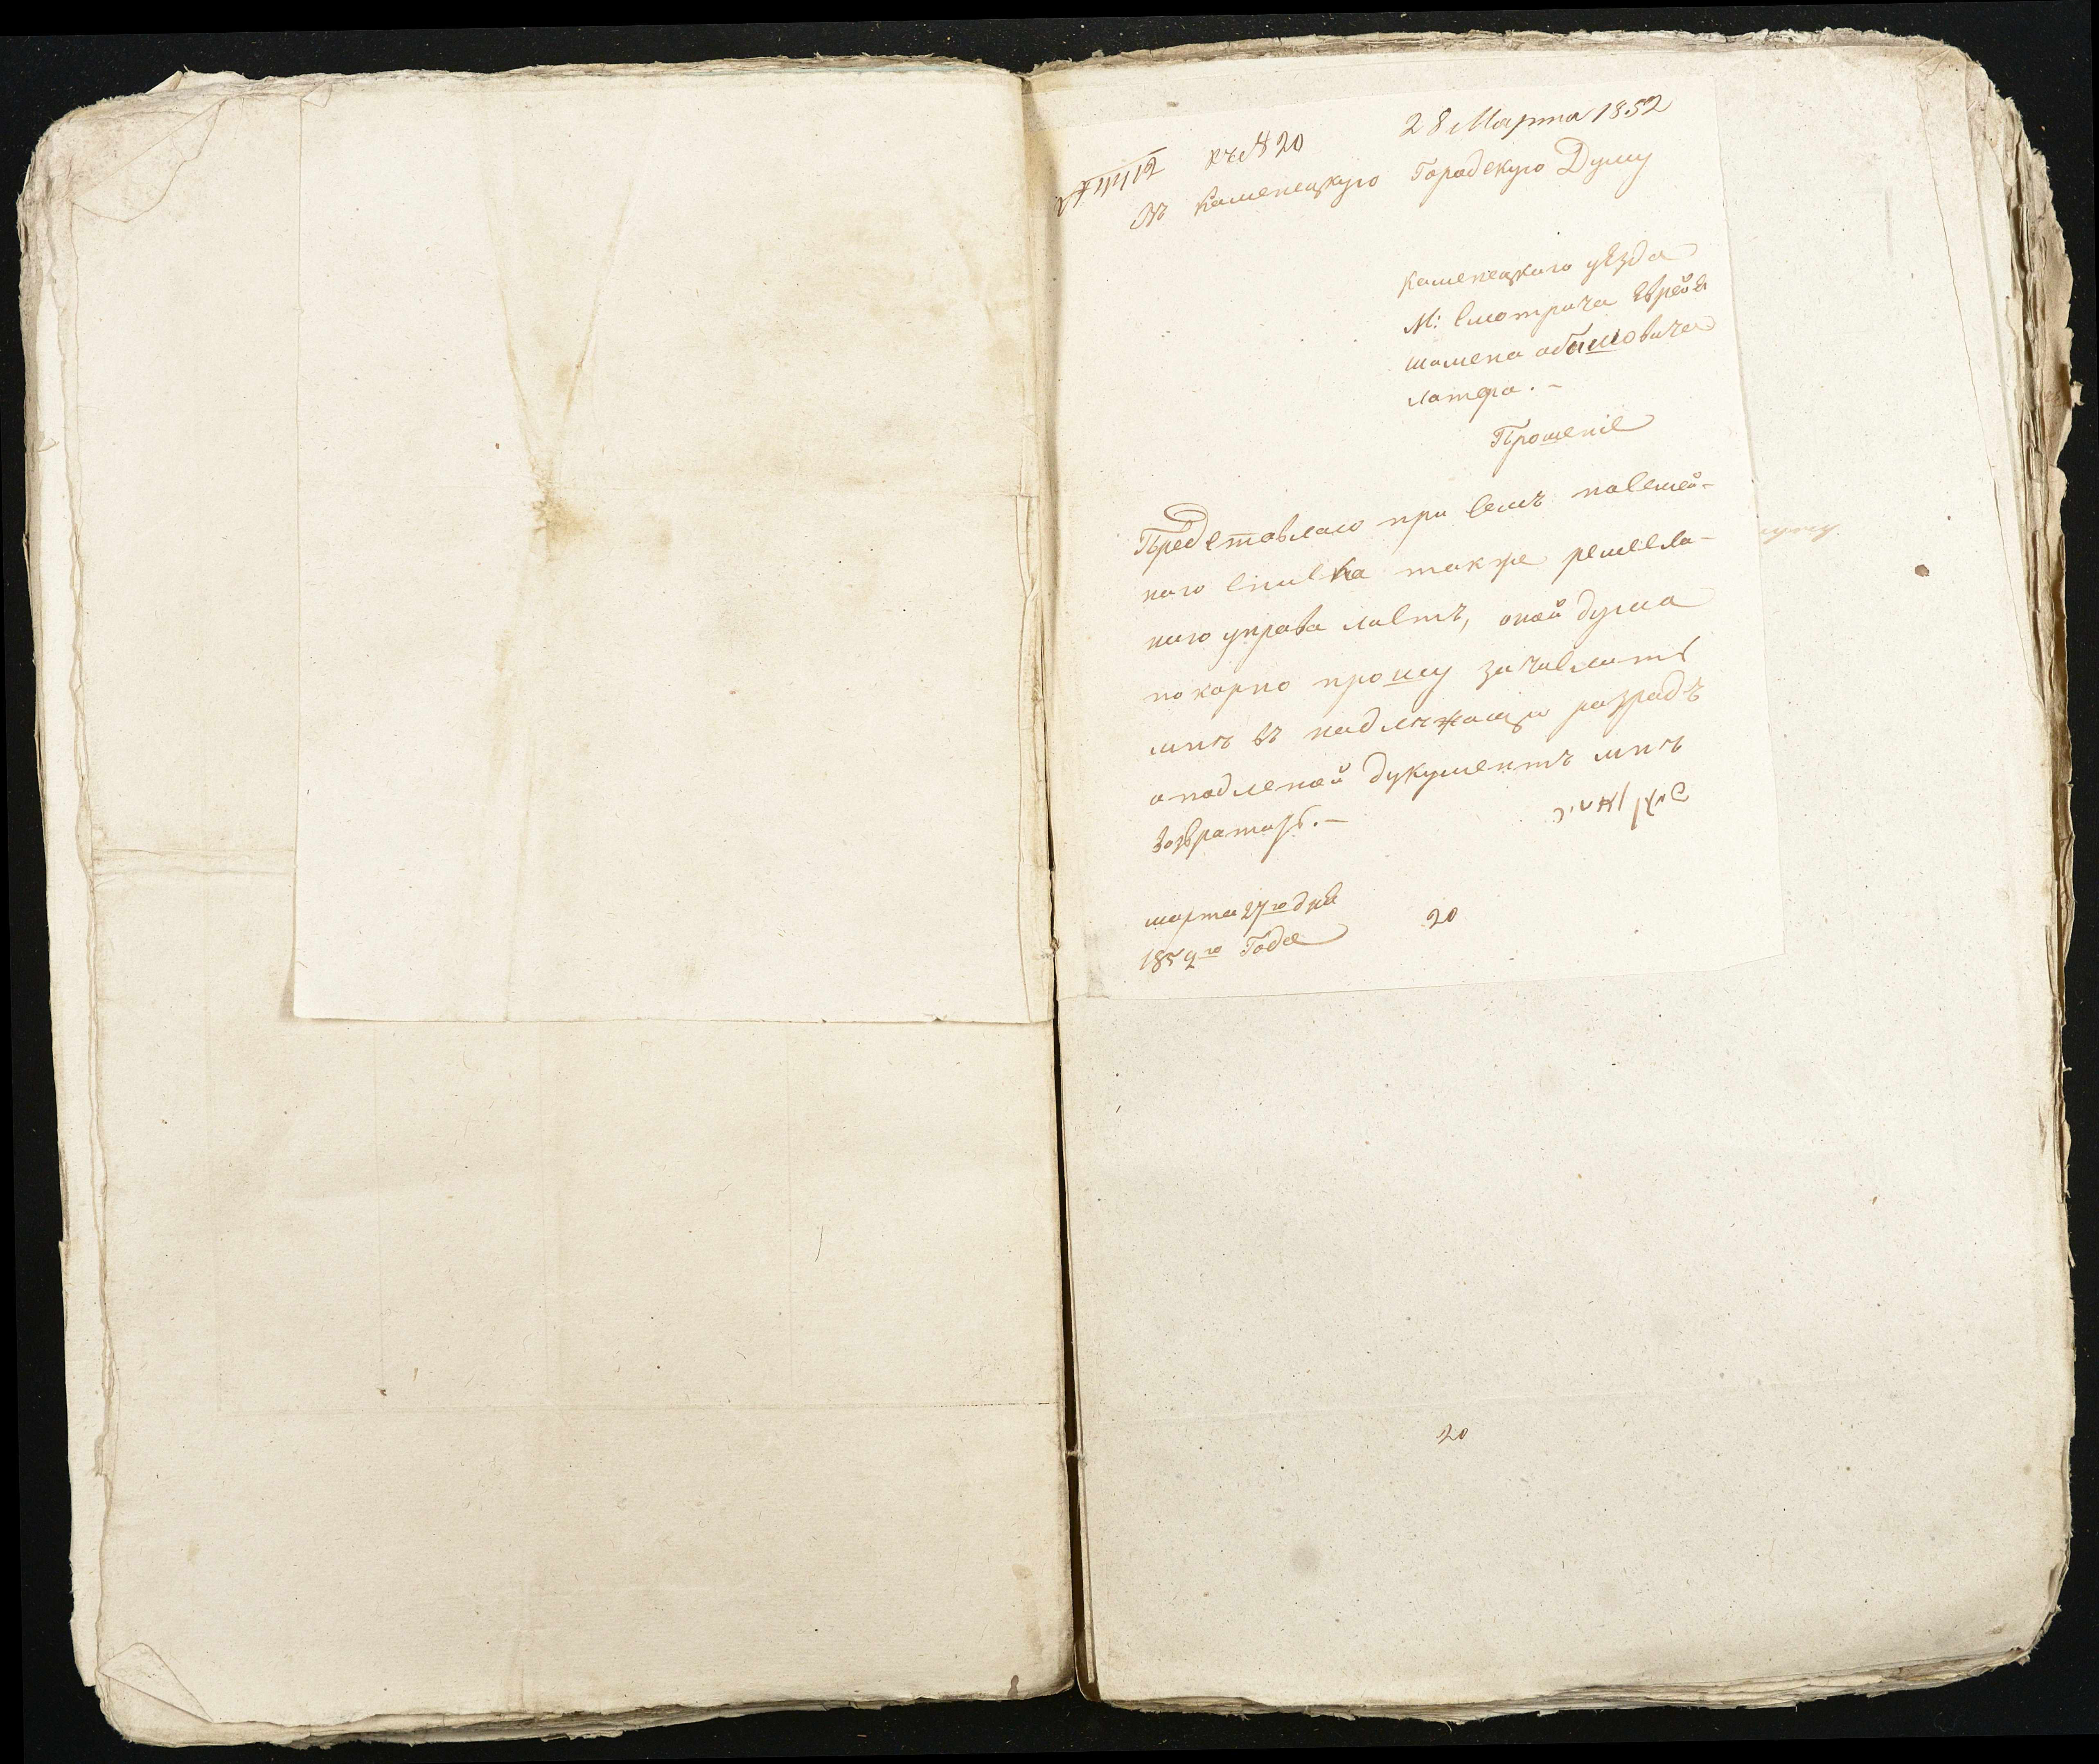 № 1112 къ № 20 28 Марта 1852
Въ Каменецкую Городскую Думу
Каменецкаго уѣзда
М: Смотрича Еврѣя
шамена абашовича
латера.-
Прошеніе
Представлаю при семъ посемей-
наго списка также ремесла-
наго управа листъ, оной дума
покорно прошу зачислить
мнѣ въ надлѣжащи разрадъ
а подленой дукументъ мнѣ
Возвратить.-
марта 27го дня
1852го Года
20
20